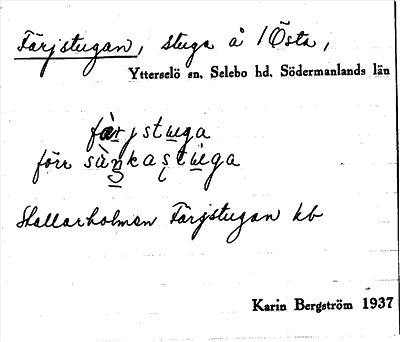 Färjstugan, stuga å /Östa,
Ytterselö sn. Selebo hd. Södermanlands län
fàrjstuga
förr sùnkastuga
Stallarholmen Färjstugan kb
Karin Bergström 1937